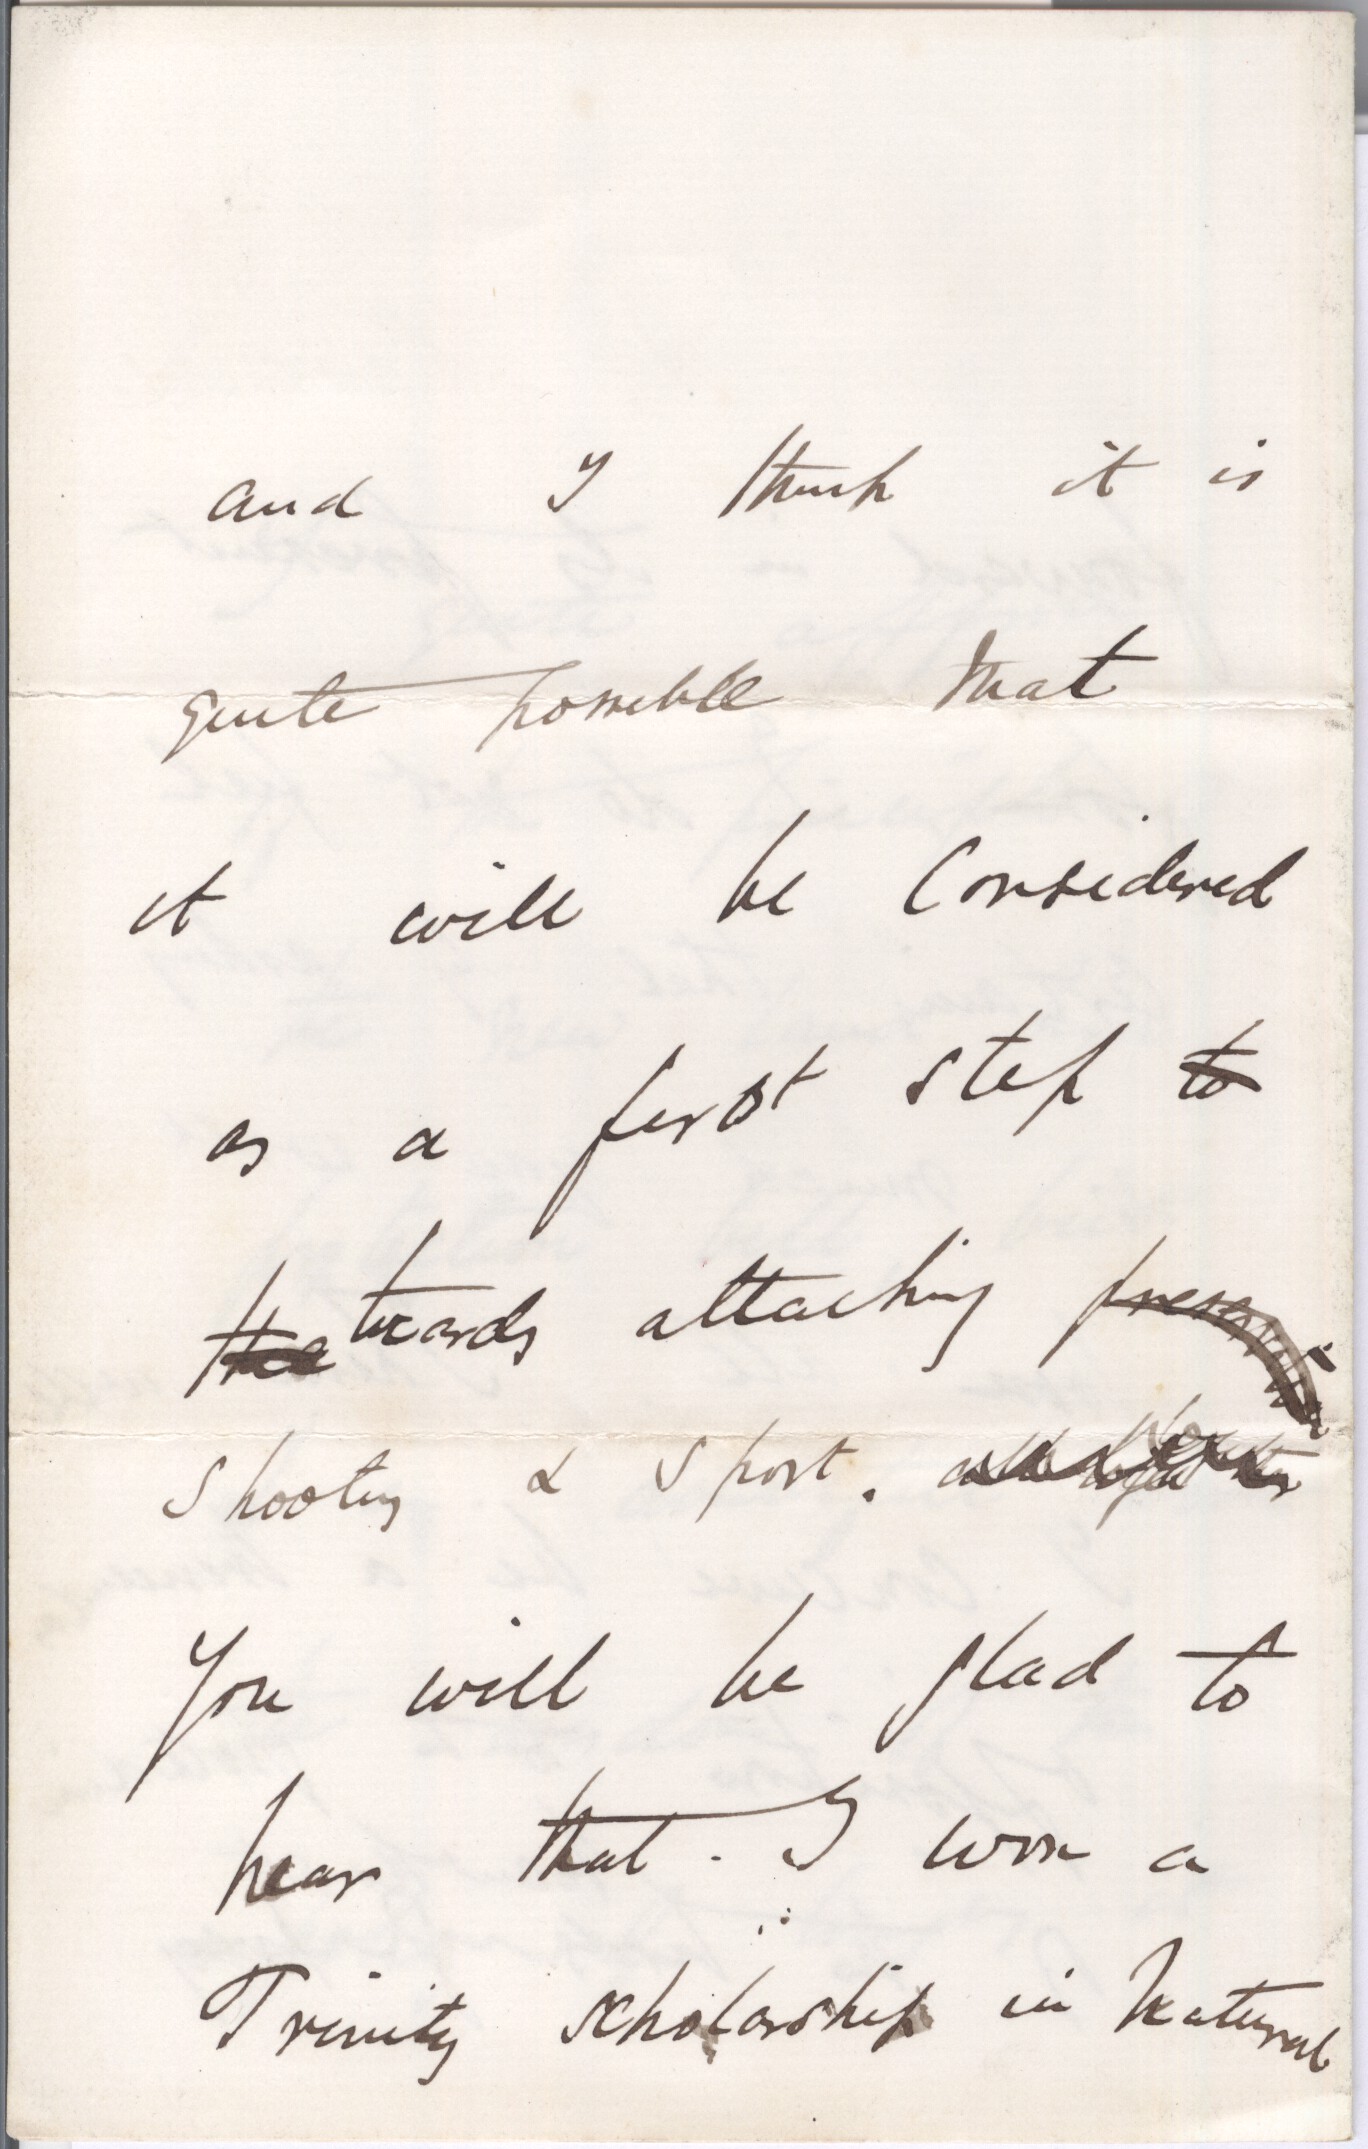 and I think it is
quite possible that
it will be Considered
as a first step to
the towards attaching
shooting & sport.
You will be glad to
hear that. I won a
Trinity scholarship in Natural